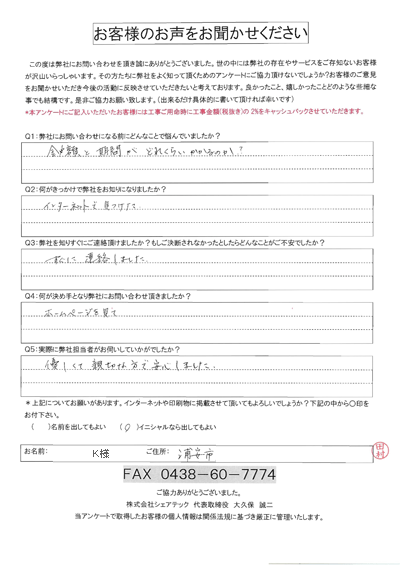 お客様のお声をお聞かせください
この度は弊社にお問い合わせを頂き誠にありがとうございました。世の中には弊社の存在やサービスをご存知ないお客様
が沢山いらっしゃいます。その方たちに弊社をよく知って頂くためのアンケートにご協力頂けないでしょうか?お客様のご意見
をお聞かせいただき今後の活動に反映させていただきたいと考えております。良かったこと、嬉しかったことどのような些細な
事でも結構です。是非ご協力お願い致します。(出来るだけ具体的に書いて頂ければ幸いです)
*本アンケートにご記入いただいたお客様には工事ご用命時に工事金額(税抜き)の2%をキャッシュバックさせていただきます。
Q1:弊社にお問い合わせになる前にどんなことで悩んでいましたか?
金額と期間がどれくらいかかるのか?
Q2:何がきっかけで弊社をお知りになりましたか?
インターネットで見つけた
Q3:弊社を知りすぐにご連絡頂けましたか?もしご決断されなかったとしたらどんなことがご不安でしたか?
連絡しました
Q4:何が決め手となり弊社にお問い合わせ頂きましたか?
ホームページを見て
Q5:実際に弊社担当者がお伺いしていかがでしたか?
優しくて親切な方で安心しました。
*上記についてお願いがあります。インターネットや印刷物に掲載させて頂いてもよろしいでしょうか?下記の中から○印を
お付下さい。
( )名前を出してもよい (○)イニシャルなら出してもよい
お名前: K様 ご住所: 浦安市
田村
FAX 0438-60-7774
ご協力ありがとうございました。
株式会社シェアテック 代表取締役 大久保 誠二
当アンケートで取得したお客様の個人情報は関係法規に基づき厳正に管理いたします。